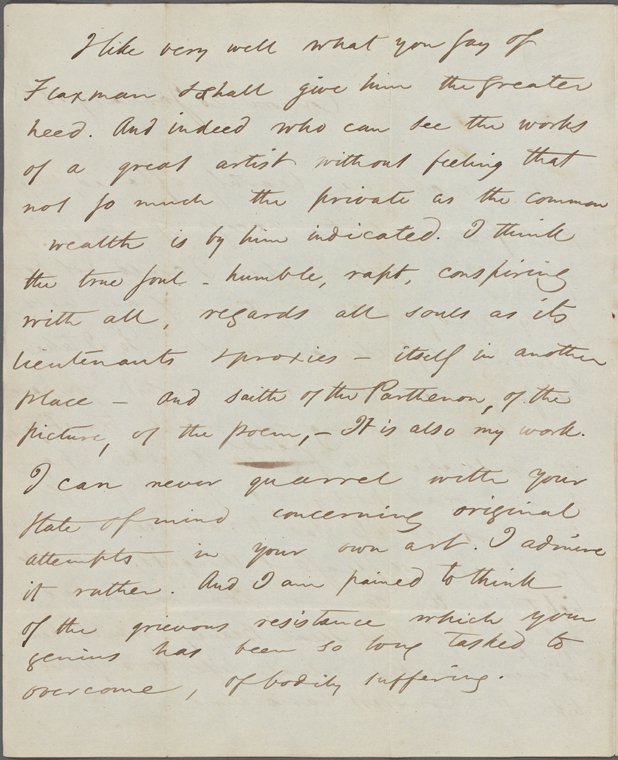 I like very well what you say of
Flaxman & shall give him the greater
heed. And indeed who can see the works
of a great artist without feeling that
not so much the private as the common
wealth is by him indicated. I think
the true soul - humble, rapt, conspiring
with all, regards all souls as its
lieutenants & proxies - itself in another
place - and saith of the Parthenon, of the
picture, of the poem, - It is also my work.
I can never quarrel with your
state of mind concerning original
attempts in your own art. I admire
it rather. And I am pained to think
of the grievous resistance which your
genius has been so long tasked to
overcome, of bodily suffering.